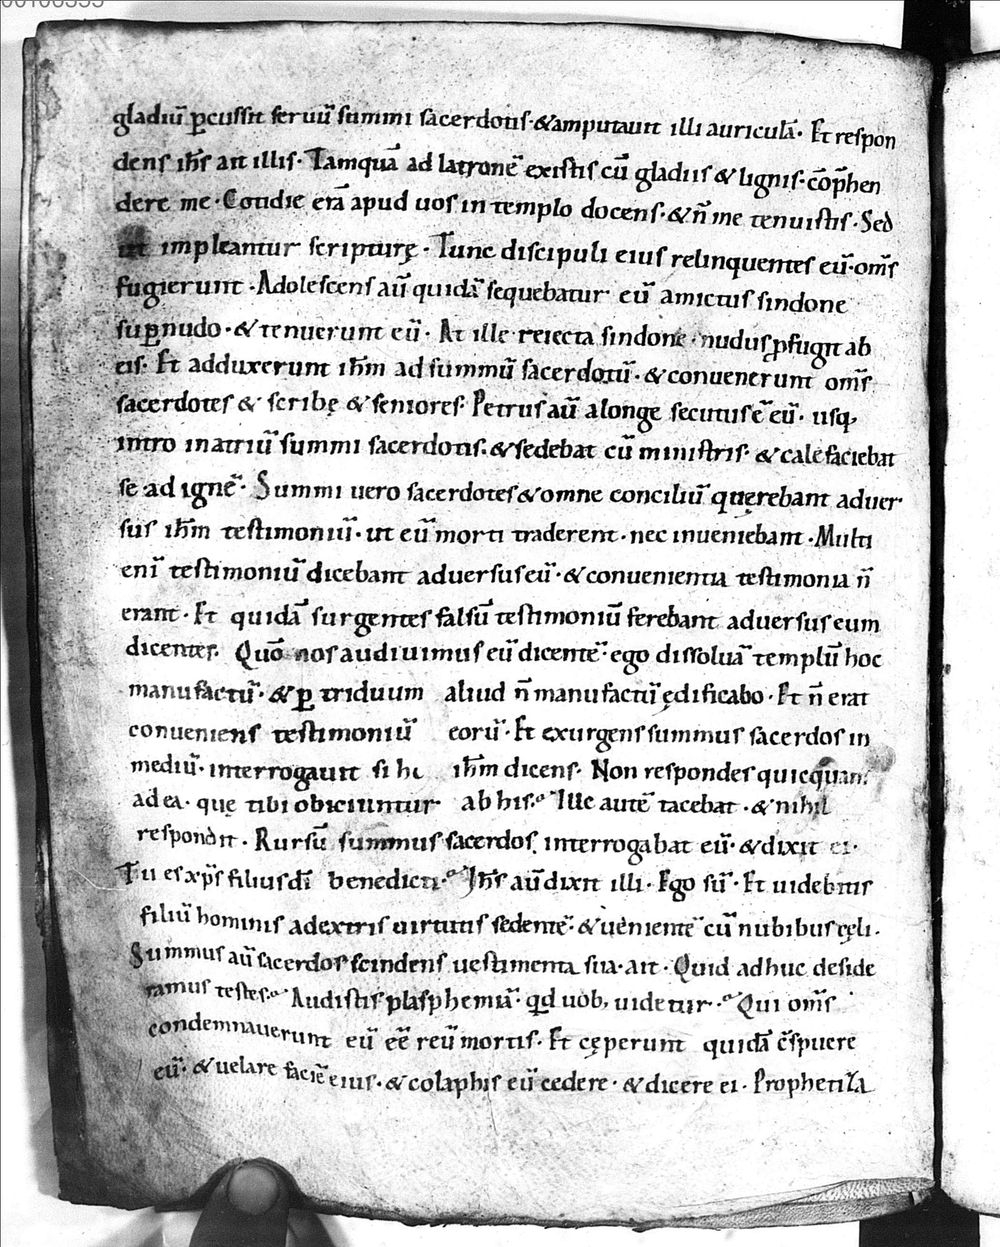 gladiū ꝑcussit seruū summi sacerdotis· & amputauit illi auriculā· Et respon
dens ih̄s ait illis· Tamquā ad latronē existis cū gladiis & lignis· cōp̄hen
dere me· Cotidie erā apud uos in templo docens· & n̄ me tenuistis· Sed
ut impleantur scripturę· Tunc discipuli eius relinquentes eū· om̄s
fugierunt· Adolescens aū quidā sequebatur eū amictus sindone
suꝑ nudo· & tenuerunt eū· At ille reiecta sindone· nudus ꝓfugit ab
eis· Et adduxerunt ih̄m ad summū sacerdotū· & conuenerunt om̄s
sacerdotes & scribę & seniores· Petrus aū a longe secutus ē eū· usq,
intro in atriū summi sacerdotis· & sedebat cū ministris· & calefaciebat
se ad ignē· Summi uero sacerdotes & omne conciliū quęrebant aduer
sus ih̄m testimoniū· ut eū morti traderent· nec inueniebant· Multi
enī testimoniū dicebant aduersus eū· & conuenientia testimonia n̄
erant· Et quidā surgentes falsū testimoniū ferebant aduersus eum
dicentes· Quō nos audiuimus eū dicentē· ego dissoluā templū hoc
manufactū· & ꝑ triduum aliud n̄ manufactū ędificabo· Et n̄ erat
conueniens testimoniū eorū· Et exurgens summus sacerdos in
mediū· interrogauit ih̄m dicens· Non respondes quicquam
ad ea· quę tibi obiciuntur ab his· Ille autē tacebat· & nihil
respondit· Rursū summus sacerdos interrogabat eū· & dixit ei·
Tu es xp̄s filius dī benedicti· Ih̄s aū dixit illi· Ego sū· Et uidebitis
filiū hominis a dextris uirtutis sedentē· & uenientē cū nubibus cęli·
Summus aū sacerdos scindens uestimenta sua· ait· Quid adhuc deside
ramus testes· Audistis plasphemiā· qd uob, uidetur· Qui om̄s
condemnauerunt eū eē reū mortis· Et cęperunt quidā c̄spuere
eū· & uelare faciē eius· & colaphis eū cedere· & dicere ei· Prophetiza